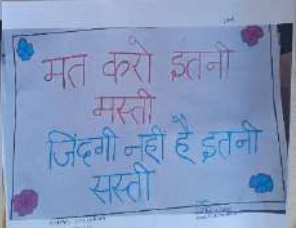 मत करो इतनी
मस्ती
जिंदगी नही है इतनी
सस्ती